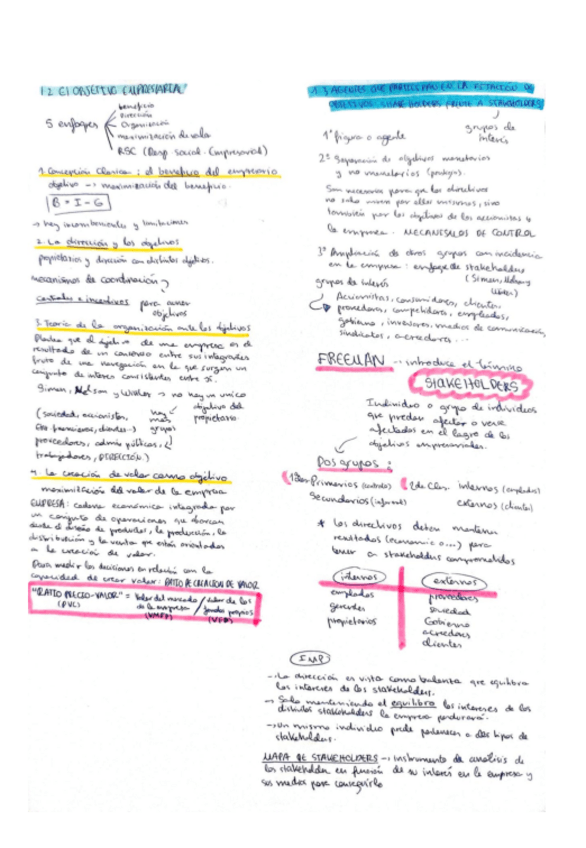 1.2 El OBJETIVO EMPRESARIAL
5 enfoques
beneficio
dirección
Organización
maximización de valor
RSC (Resp social. Empresarial)
1. Concepción Clásica: el beneficio del empresario
objetivo → maximización del beneficio.
B = I - G
→ hay inconvenientes y limitaciones
2. La dirección y los objetivos
propietarios y dirección con distintos objetivos.
mecanismos de coordinación
controles e incentivos para aunar
objetivos
3. Teoría de la organización ante los objetivos
Plantea que el objetivo de una empresa es el
resultado de un consenso entre sus integrantes
fruto de una negociación en la que surgen un
conjunto de interes consistentes entre sí.
Simon, Nelson y → no hay un unico
objetivo del
propietario.
(sociedad, accionistas, hay
mas
grupos
proveedores, admin públicas,
trabajadores, DIRECCIÓN.)
4. La creación de valor como objetivo
maximización del valor de la empresa
EMPRESA: cadena económica integrada por
un conjunto de operaciones que abarcan
desde el diseño de productos, la producción, la
distribución y la venta que están orientadas
a la creación de valor.
Para medir las decisiones en relación con la
capacidad de crear valor: RATIO DE CREACION DE VALOR
"RATIO PRECIO-VALOR" = Valor del mercado / valor de los
(PVC) de la empresa fondos propios
1.3 AGENTES QUE PARTICIPAN EN LA FIJACIÓN DE
OBJETIVOS: SHAREHOLDERS FRENTE A STAKEHOLDERS
grupos de
interés
1º figura o agente
2º Separación de objetivos monetarios
y no monetarios (prestigio).
Son necesarios para que los directivos
no solo miren por ellos mismos, sino
también por los objetivos de los accionistas y
la empresa. MECANISMOS DE CONTROL
3º Ampliación de otros grupos con incidencia
en la empresa: enfoque de stakeholders
grupos de interés
Accionistas, consumidores, clientes,
proveedores, competidores, empleados,
gobierno, inversores, medios de comunicación,
sindicatos, acreedores...
FREEMAN → introduce el término
STAKEHOLDERS
Individuo o grupo de individuos
que puedan afectar o verse
afectados en el logro de los
objetivos empresariales.
Dos grupos:
1ªClas. Primarios (contrato)
Secundarios
2ªClas. internos (empleados)
externos (clientes)
* Los directivos deben mantener
resultados (económico o...) para
tener a stakeholders comprometidos
internos
empleados
gerentes
propietarios
externos
proveedores
sociedad
Gobierno
acreedores
clientes
IMP
→ La dirección es vista como balanza que equilibra
los intereses de los stakeholders.
→ Solo manteniendo el equilibrio los intereses de los
distintos stakeholders la empresa perdurará.
→ Un mismo individuo puede pertenecer a dos tipos de
stakeholders.
MAPA DE STAKEHOLDERS → instrumento de análisis de
los stakeholder en función de su interés en la empresa y
sus medios para conseguirlo